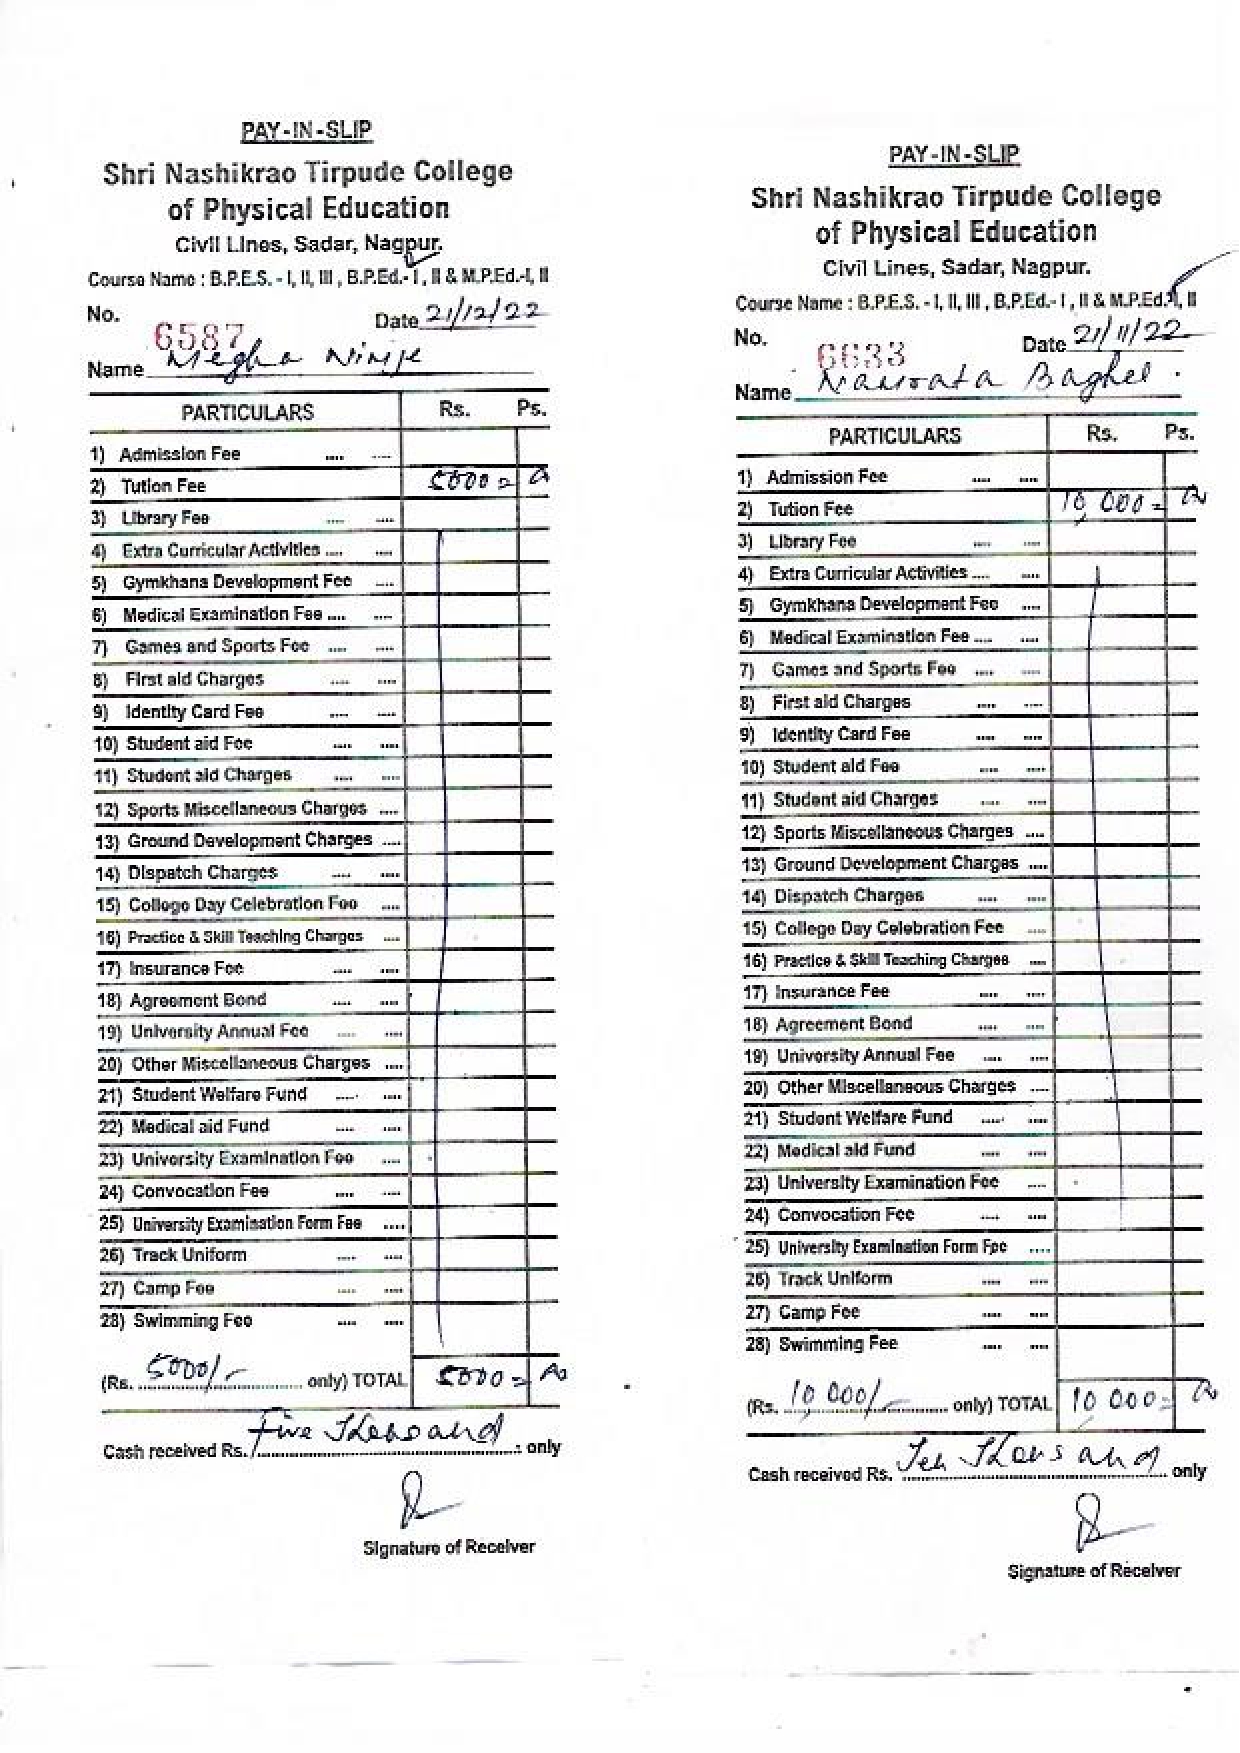 PAY-IN-SLIP
Shri Nashikrao Tirpude College
of Physical Education
Civil Lines, Sadar, Nagpur.
Course Name : B.P.E.S. - I, II, III , B.P.Ed.- I , II & M.P.Ed.-I, II
No. 6587 Date 21/12/22
Name Megha Nimje
PARTICULARS Rs. Ps.
1) Admission Fee .... ....
2) Tution Fee 5000=
3) Library Fee .... ....
4) Extra Curricular Activities .... ....
5) Gymkhana Development Fee ....
6) Medical Examination Fee .... ....
7) Games and Sports Fee .... ....
8) First aid Charges .... ....
9) Identity Card Fee .... ....
10) Student aid Fee .... ....
11) Student aid Charges .... ....
12) Sports Miscellaneous Charges ....
13) Ground Development Charges ....
14) Dispatch Charges .... ....
15) College Day Celebration Fee ....
16) Practice & Skill Teaching Charges ....
17) Insurance Fee .... ....
18) Agreement Bond .... ....
19) University Annual Fee .... ....
20) Other Miscellaneous Charges ....
21) Student Welfare Fund .... ....
22) Medical aid Fund .... ....
23) University Examination Fee ....
24) Convocation Fee .... ....
25) University Examination Form Fee ....
26) Track Uniform .... ....
27) Camp Fee .... ....
28) Swimming Fee .... ....
(Rs. 5000/- only) TOTAL 5000=
Cash received Rs. Five Thousand only
Signature of Receiver
PAY-IN-SLIP
Shri Nashikrao Tirpude College
of Physical Education
Civil Lines, Sadar, Nagpur.
Course Name : B.P.E.S. - I, II, III , B.P.Ed.- I , II & M.P.Ed.-I, II
No. 6633 Date 21/11/22
Name Baghel
PARTICULARS Rs. Ps.
1) Admission Fee .... ....
2) Tution Fee 10,000=
3) Library Fee .... ....
4) Extra Curricular Activities .... ....
5) Gymkhana Development Fee ....
6) Medical Examination Fee .... ....
7) Games and Sports Fee .... ....
8) First aid Charges .... ....
9) Identity Card Fee .... ....
10) Student aid Fee .... ....
11) Student aid Charges .... ....
12) Sports Miscellaneous Charges ....
13) Ground Development Charges ....
14) Dispatch Charges .... ....
15) College Day Celebration Fee ....
16) Practice & Skill Teaching Charges ....
17) Insurance Fee .... ....
18) Agreement Bond .... ....
19) University Annual Fee .... ....
20) Other Miscellaneous Charges ....
21) Student Welfare Fund .... ....
22) Medical aid Fund .... ....
23) University Examination Fee ....
24) Convocation Fee .... ....
25) University Examination Form Fee ....
26) Track Uniform .... ....
27) Camp Fee .... ....
28) Swimming Fee .... ....
(Rs. 10,000/- only) TOTAL 10,000=
Cash received Rs. Ten Thousand only
Signature of Receiver